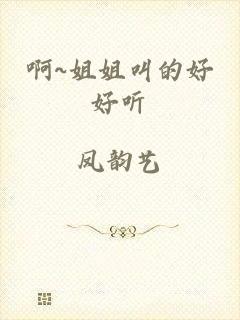 啊~姐姐叫的好
好听
凤韵艺